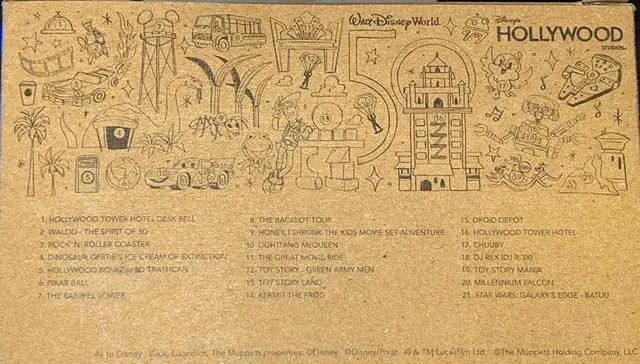 Walt Disney World
Disney's
HOLLYWOOD
STUDIOS
50
1. HOLLYWOOD TOWER HOTEL DESK BELL
2. WALDO - THE SPIRIT OF 3D
3. ROCK 'N' ROLLER COASTER
4. DINOSAUR GERTIE'S ICE CREAM OF EXTINCTION
5. HOLLYWOOD BOULEVARD TRASHCAN
6. PIXAR BALL
7. THE EARFFEL TOWER
8. THE BACKLOT TOUR
9. HONEY, I SHRUNK THE KIDS MOVIE SET ADVENTURE
10. LIGHTNING McQUEEN
11. THE GREAT MOVIE RIDE
12. TOY STORY - GREEN ARMY MEN
13. TOY STORY LAND
14. KERMIT THE FROG
15. DROID DEPOT
16. HOLLYWOOD TOWER HOTEL
17. CHUUBY
18. DJ REX (DJ R-3X)
19. TOY STORY MANIA
20. MILLENNIUM FALCON
21. STAR WARS: GALAXY'S EDGE - BATUU
As to Disney Pixar, Lucasfilm, The Muppets properties: ©Disney ©Disney/Pixar © & TM Lucasfilm Ltd. ©The Muppets Holding Company, LLC